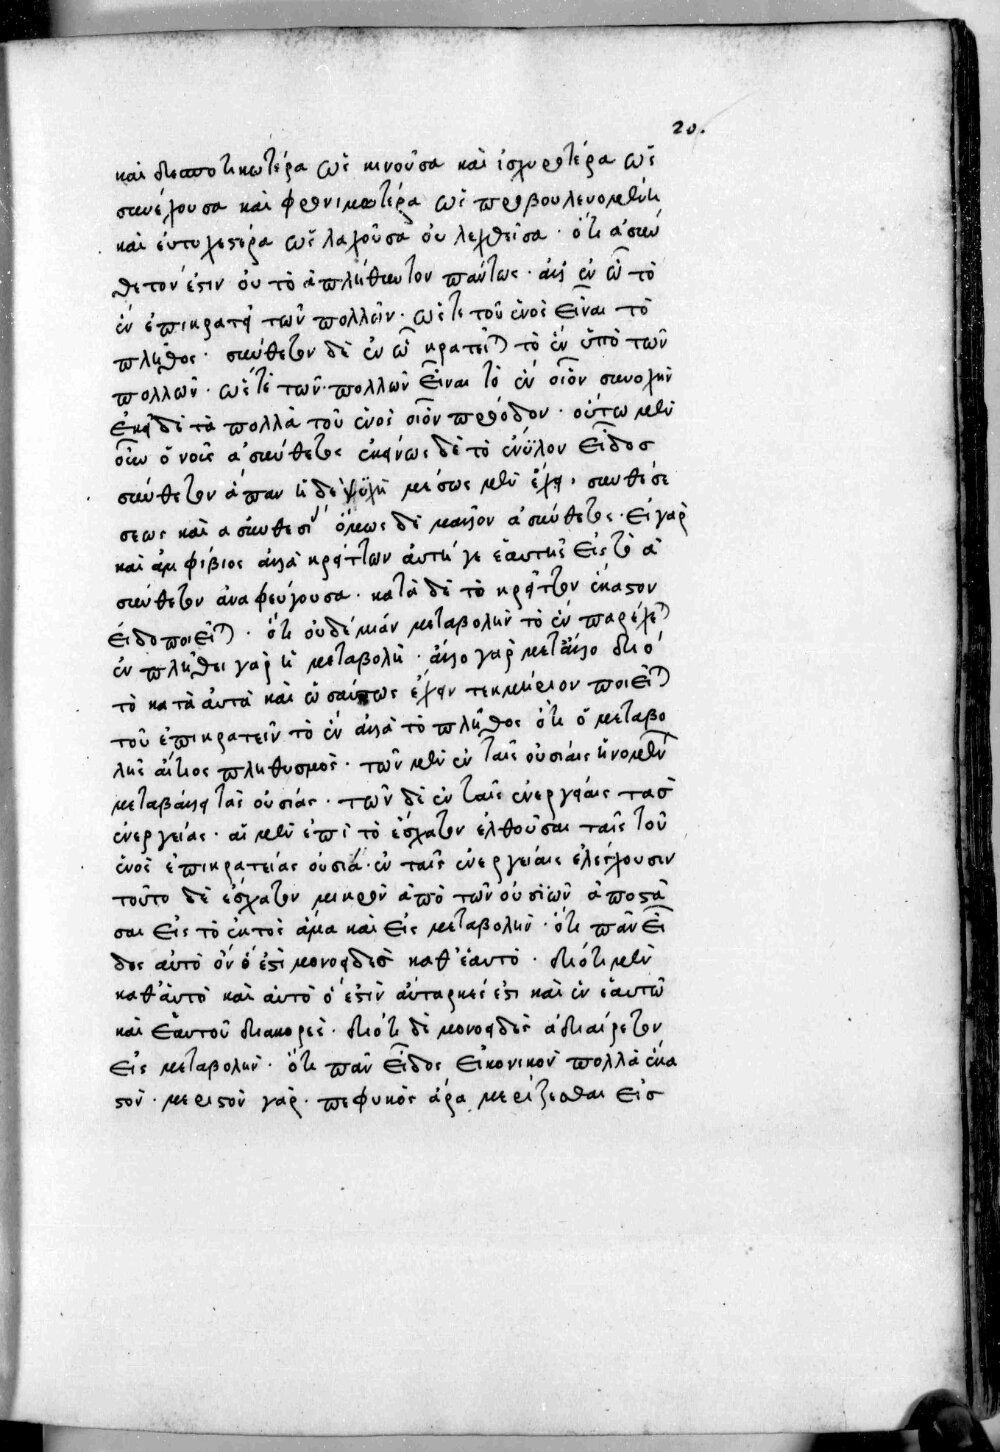 20.
καὶ δεσποτικωτέρα ὡς κινοῦσα καὶ ἰσχυροτέρα ὡς
συνέχουσα καὶ φρονιμωτέρα ὡς προβουλευομένη
καὶ εὐτυχεστέρα ὡς λαχοῦσα οὐ λεχθεῖσα · ὅτι ἀσύν
θετον ἐστιν οὐ τὸ ἀπλήθυντον πάντως · ἀλλ' ἐν ᾧ τὸ
ἓν ἐπικρατεῖ τῶν πολλῶν · ὥστε τοῦ ἑνὸς εἶναι τὸ
πλῆθος · σύνθετον δὲ ἐν ᾧ κρατεῖται τὸ ἓν ὑπὸ τῶν
πολλῶν · ὥστε τῶν πολλῶν εἶναι τὸ ἓν οἷον συνοχὴν
ἐκεῖ δὲ τὰ πολλὰ τοῦ ἑνὸς οἷον πρόοδον · οὕτω μὲν
οὖν ὁ νοῦς ἀσύνθετος ἐκείνως δὲ τὸ ἔνυλον εἶδος
σύνθετον ἅπαν ἡ δὲ ψυχὴ μέσως μὲν ἔχει · συνθέσε
σεως καὶ ασυνθεσί ὅμως δὲ μᾶλλον ἀσύνθετος · εἰ γὰρ
καὶ ἀμφίβιος ἀλλὰ κρείττων αὐτή γε ἑαυτῆς εἰς τὸ ἀ
σύνθετον ἀναφεύγουσα · κατὰ δὲ τὸ κρεῖττον ἕκαστον
εἰδοποιεῖται · ὅτι οὐδεμίαν μεταβολὴν τὸ ἓν παρέχεται
ἐν πλήθει γὰρ ἡ μεταβολή · ἄλλο γὰρ μετ' ἄλλο διὸ
τὸ κατὰ αὐτὰ καὶ ὡσαύτως ἔχειν τεκμήριον ποιεῖται
τοῦ ἐπικρατεῖν τὸ ἓν ἀλλὰ τὸ πλῆθος ὅτι ὁ μεταβο
λῆς αἴτιος πληθυσμός · τῶν μὲν ἐν ταῖς οὐσίαις γινομένων
μεταβάλλει τὰς οὐσίας · τῶν δὲ ἐν ταῖς ἐνεργείαις τας
ἐνεργείας · αἳ μὲν ἐπὶ τὸ ἔσχατον ἐλθοῦσαι ταῖς τοῦ
ἑνὸς ἐπικρατείας οὐσία · ἐν ταῖς ἐνεργείαις ἐλέγχουσιν
τοῦτο δὲ ἔσχατον μικρὸν ἀπὸ τῶν οὐσιῶν ἀποστᾶ
σαι εἰς τὸ ἐκτὸς ἅμα καὶ εἰς μεταβολήν · ὅτι πᾶν εἶ
δος αὐτὸ ὂν ὅ ἐστι μονοειδὲς καθ' ἑαυτό · διότι μὲν
καθ' αὑτὸ καὶ αὐτὸ ὅ ἐστὶν αὔταρκές ἐστι καὶ ἐν ἑαυτῷ
καὶ ἑαυτοῦ διακορές · διότι δὲ μονοειδὲς ἀδιαίρετον
εἰς μεταβολήν · ὅτι πᾶν εἶδος εἰκονικὸν πολλὰ ἕκα
στόν · μεριστὸν γάρ · πεφυκὸς ἄρα μερίζεσθαι εἰς